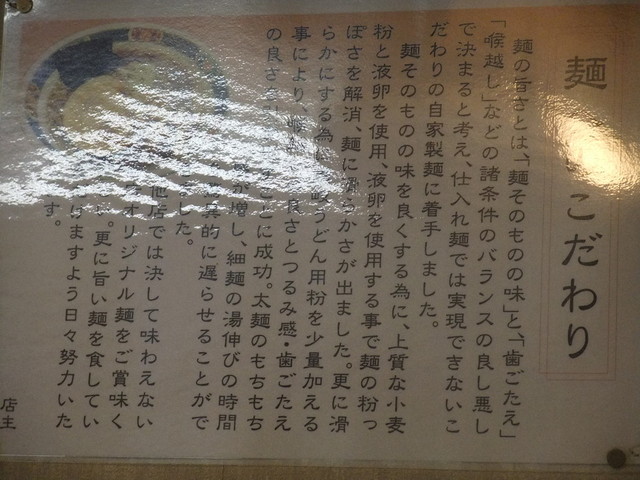 麺 こだわり
麺の旨さとは、「麺そのものの味」と、「歯ごたえ」
「喉越し」などの諸条件のバランスの良し悪し
で決まると考え、仕入れ麺では実現できないこ
だわりの自家製麺に着手しました。
麺そのものの味を良くする為に、上質な小麦
粉と液卵を使用、液卵を使用する事で麺の粉っ
ぽさを解消、麺に滑らかさが出ました。更に滑
らかにする為に うどん用粉を少量加える
事により、 良さとつるみ感・歯ごたえ
の良さを ことに成功。太麺のもちもち
が増し、細麺の湯伸びの時間
的に遅らせることがで
ました。
他店では決して味わえない
オリジナル麺をご賞味く
い。更に旨い麺を食してい
だけますよう日々努力いた
す。
店主